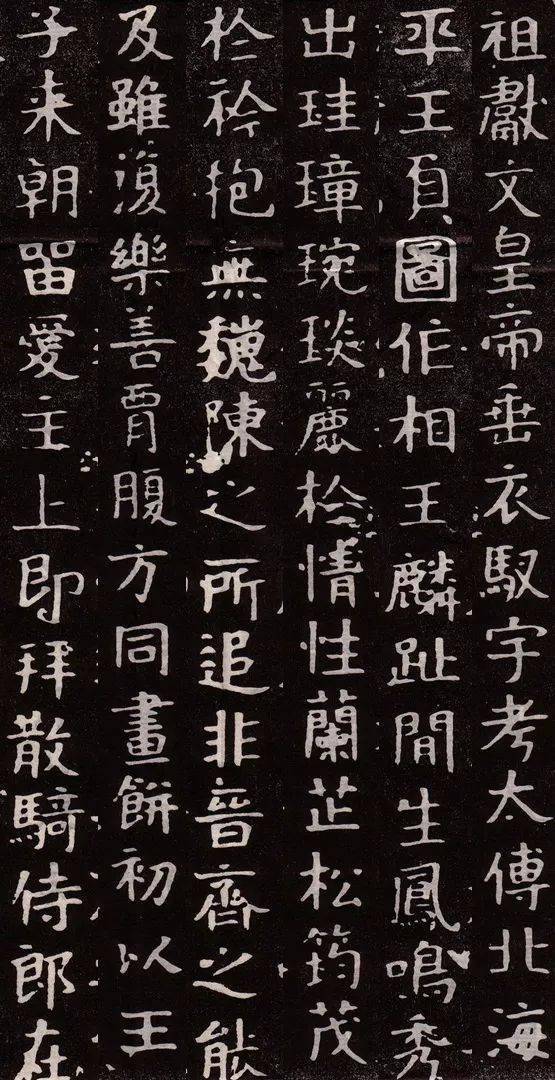 祖獻文皇帝垂衣馭宇考太傅北海
平王負圖作相王麟趾間生鳳鳴秀
出珪璋琬琰麗於情性蘭芷松筠茂
於衿抱無魏陳之所追非晉齊之能
及雖復樂善胥腹方同畫餅初以王
子来朝留愛主上即拜散騎侍郎在